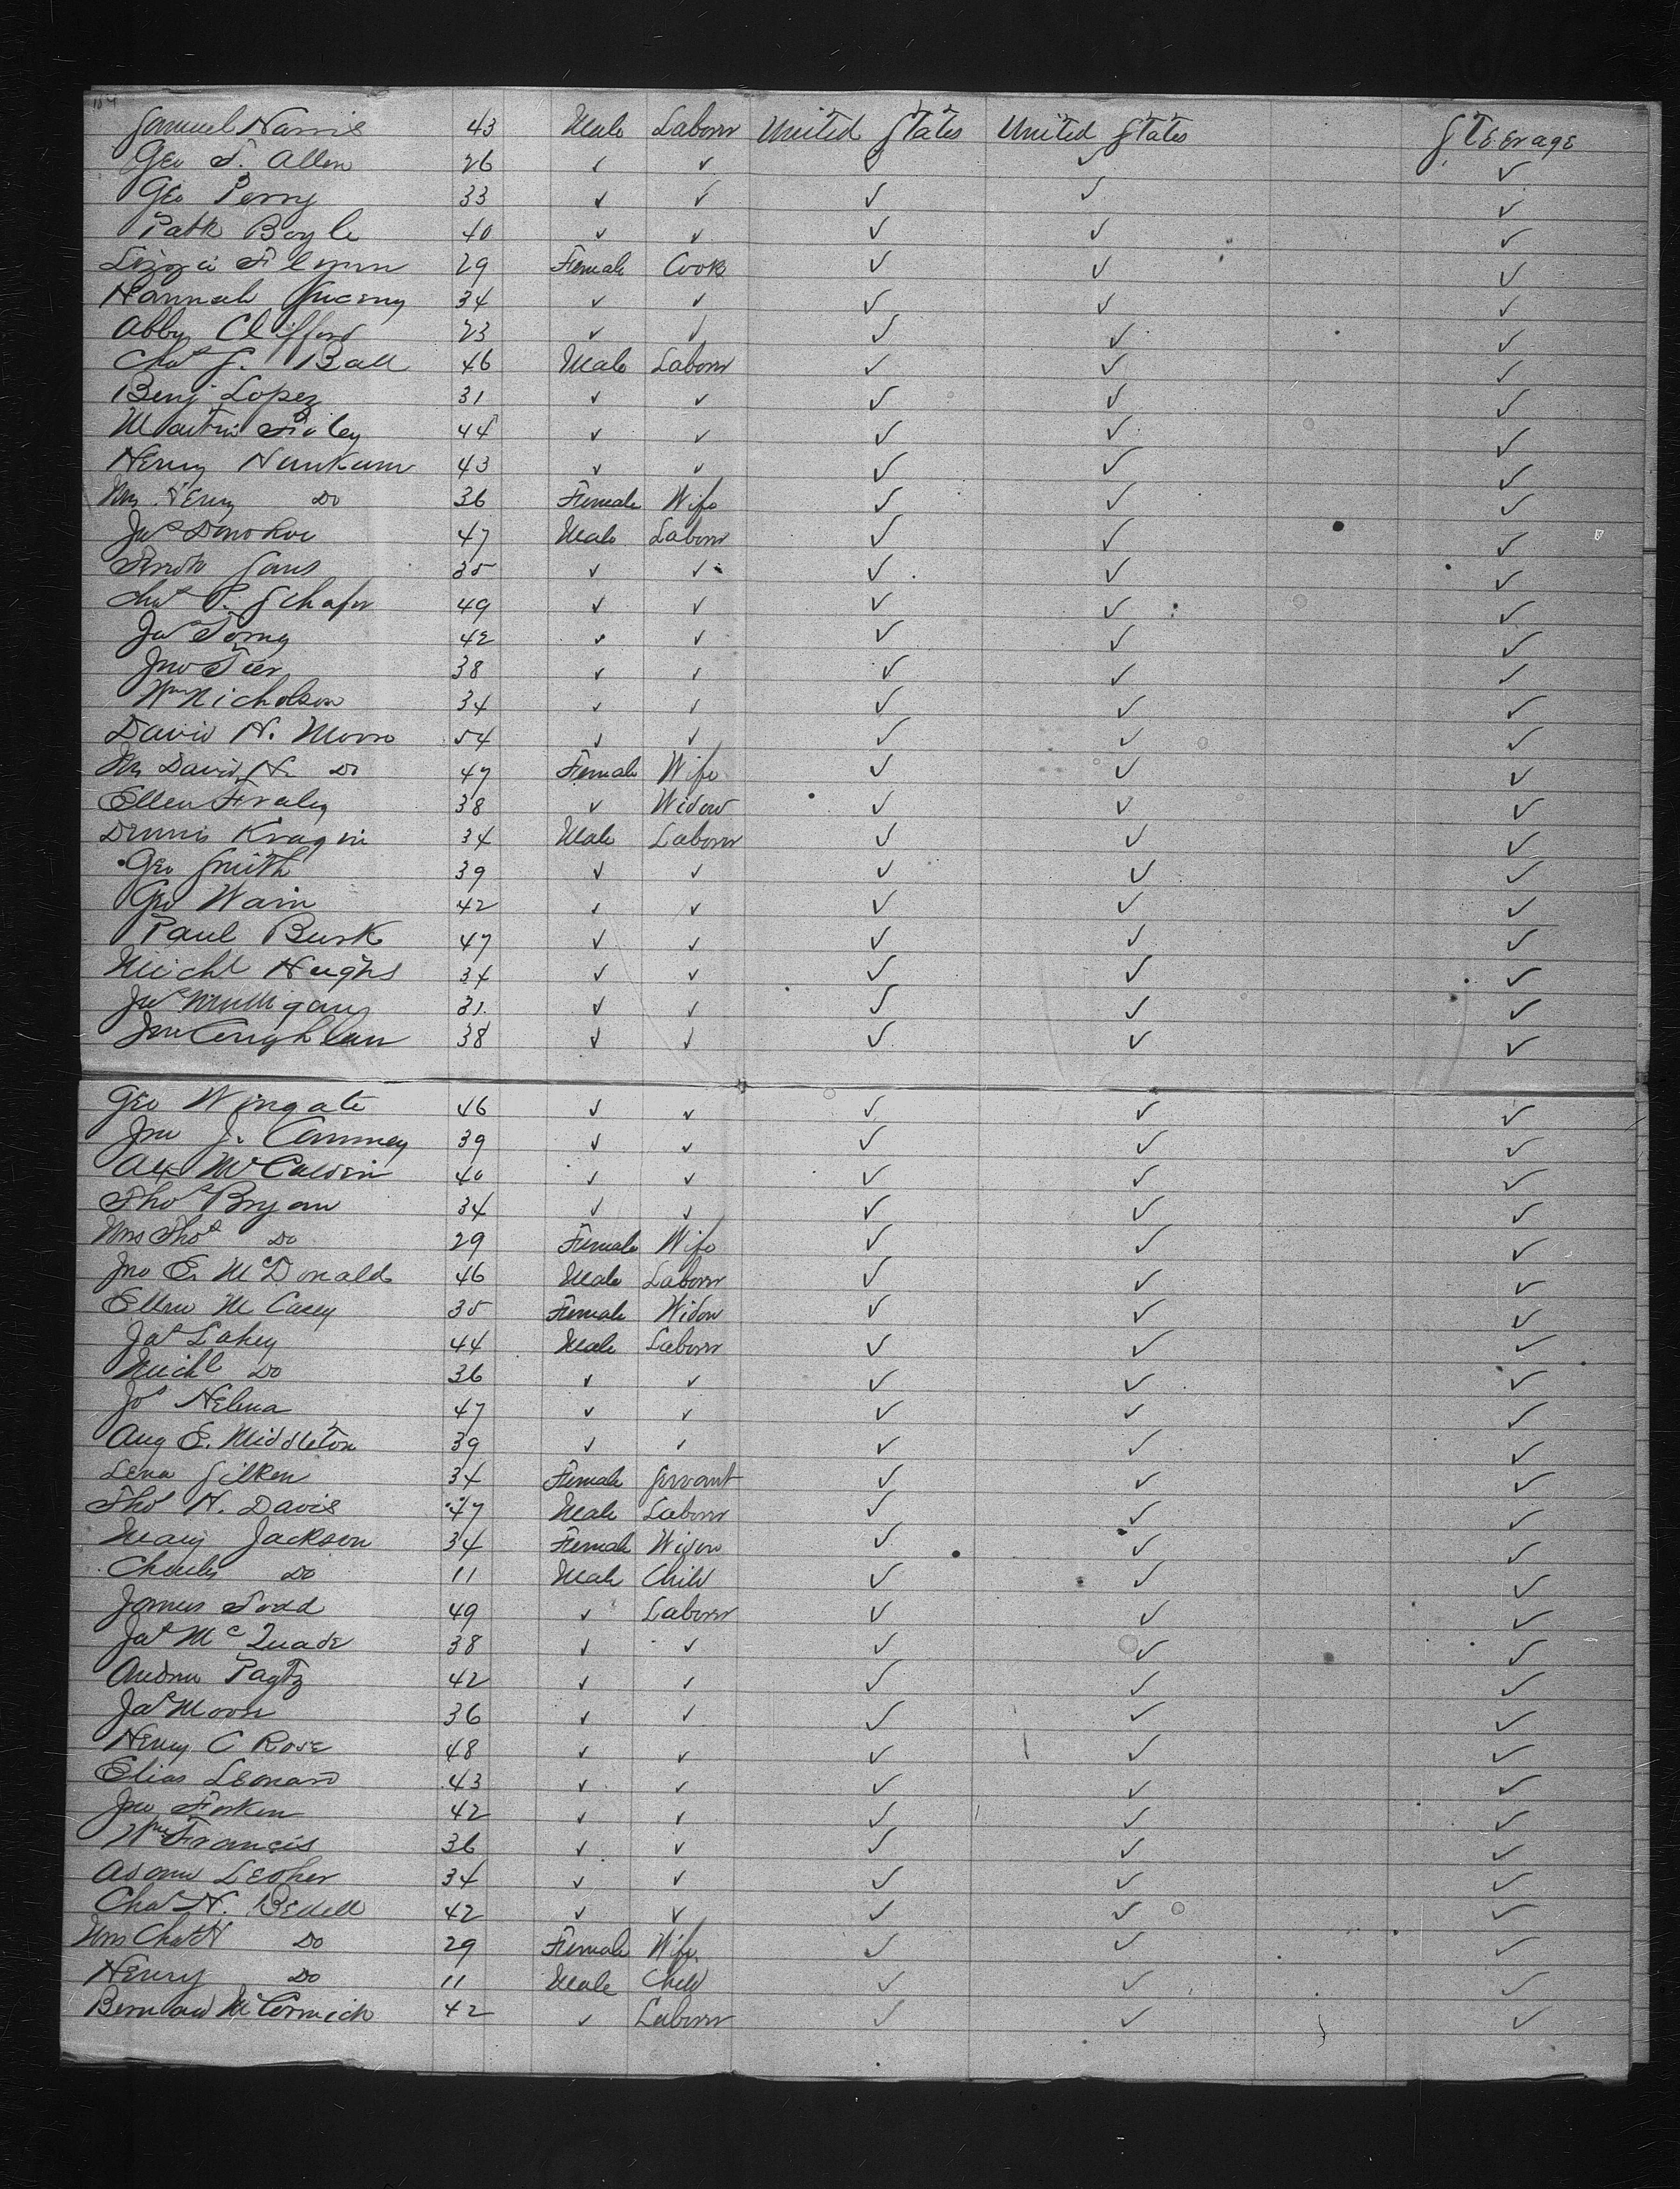 Samuel Harris 43 Male Laborer United States United States Steerage
Geo T. Allen 26 ✓ ✓ ✓ ✓ ✓
Geo Perry 33 ✓ ✓ ✓ ✓ ✓
Patk Boyle 40 ✓ ✓ ✓ ✓ ✓
Lizzie Flynn 29 Female Cook ✓ ✓ ✓
Hannah 34 ✓ ✓ ✓ ✓ ✓
Abby Clifford 23 ✓ ✓ ✓ ✓ ✓
Chas J. Ball 46 Male Laborer ✓ ✓ ✓
Benj Lopez 31 ✓ ✓ ✓ ✓ ✓
Martin 44 ✓ ✓ ✓ ✓ ✓
Henry Hunkum 43 ✓ ✓ ✓ ✓ ✓
Mrs Henry Do 36 Female Wife ✓ ✓ ✓
Jas Donohoe 47 Male Laborer ✓ ✓ ✓
Gans 35 ✓ ✓ ✓ ✓ ✓
Chas P. Schafer 49 ✓ ✓ ✓ ✓ ✓
Jas 42 ✓ ✓ ✓ ✓ ✓
Jno Tier 38 ✓ ✓ ✓ ✓ ✓
Wm Nicholson 34 ✓ ✓ ✓ ✓ ✓
David H. Moore 54 ✓ ✓ ✓ ✓ ✓
Mrs David H. Do 47 Female Wife ✓ ✓ ✓
Ellen Fraley 38 ✓ Widow ✓ ✓ ✓
Dennis Kragin 34 Male Laborer ✓ ✓ ✓
Geo Smith 39 ✓ ✓ ✓ ✓ ✓
Geo Wain 42 ✓ ✓ ✓ ✓ ✓
Paul Burk 47 ✓ ✓ ✓ ✓ ✓
Michl Hughs 34 ✓ ✓ ✓ ✓ ✓
Jas Mulligan 31 ✓ ✓ ✓ ✓ ✓
Jno Coughlan 38 ✓ ✓ ✓ ✓ ✓
Geo Wingate 46 ✓ ✓ ✓ ✓ ✓
Jno J. 39 ✓ ✓ ✓ ✓ ✓
Alx 40 ✓ ✓ ✓ ✓ ✓
Thos Bryan 34 ✓ ✓ ✓ ✓ ✓
Mrs Thos Do 29 Female Wife ✓ ✓ ✓
Jno E. McDonald 46 Male Laborer ✓ ✓ ✓
Ellen M Casey 35 Female Widow ✓ ✓ ✓
Jas Lahey 44 Male Laborer ✓ ✓ ✓
Michl Do 36 ✓ ✓ ✓ ✓ ✓
Jos 47 ✓ ✓ ✓ ✓ ✓
Aug E. Middleton 39 ✓ ✓ ✓ ✓ ✓
Lena Silken 34 Female Servant ✓ ✓ ✓
Thos H. Davis 47 Male Laborer ✓ ✓ ✓
Mary Jackson 34 Female Widow ✓ ✓ ✓
Charles Do 11 Male Child ✓ ✓ ✓
James Todd 49 ✓ Laborer ✓ ✓ ✓
Jas McQuade 38 ✓ ✓ ✓ ✓ ✓
Andrew Pagtz 42 ✓ ✓ ✓ ✓ ✓
Jas Moore 36 ✓ ✓ ✓ ✓ ✓
Henry C Rose 48 ✓ ✓ ✓ ✓ ✓
Elias Leonard 43 ✓ ✓ ✓ ✓ ✓
Jno 42 ✓ ✓ ✓ ✓ ✓
Wm Francis 36 ✓ ✓ ✓ ✓ ✓
Adam 34 ✓ ✓ ✓ ✓ ✓
Chas H. Bedell 42 ✓ ✓ ✓ ✓ ✓
Mrs Chas H Do 29 Female Wife ✓ ✓ ✓
Henry Do 11 Male Child ✓ ✓ ✓
Bernard McCormick 42 ✓ Laborer ✓ ✓ ✓